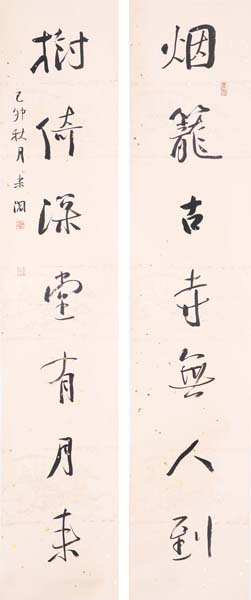 烟籠古寺無人到
樹倚深堂有月来
己卯秋月